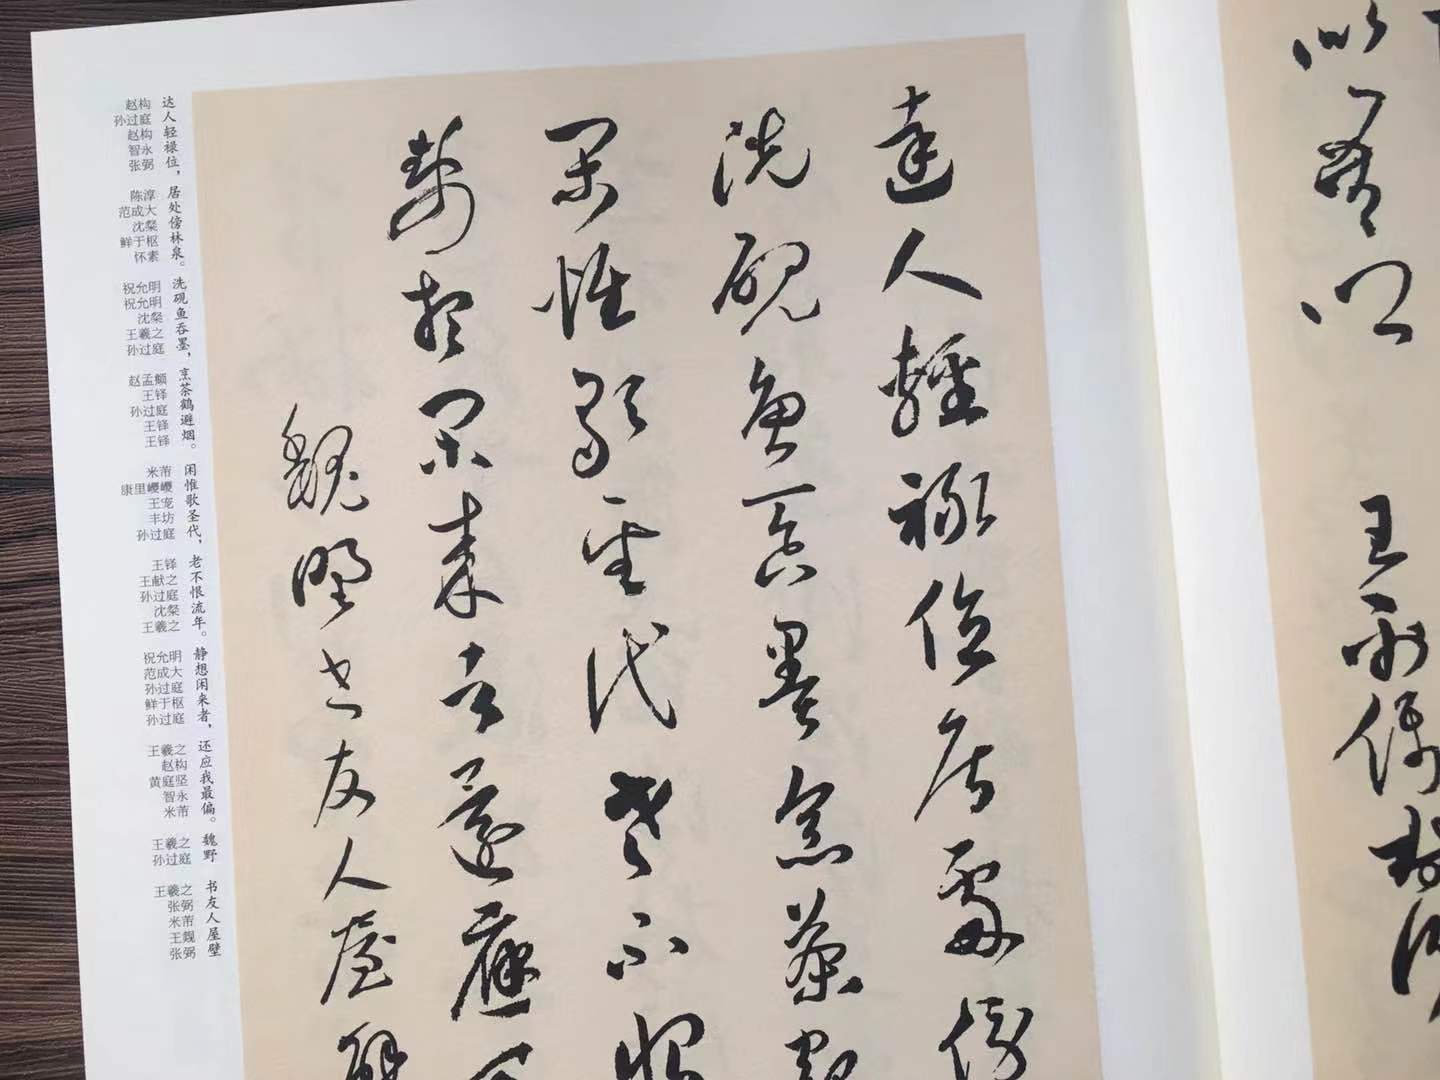 達人輕祿位居處傍
洗硯魚吞墨烹茶鶴
閑惟歌聖代老不恨
静想閑来者還應
魏野书友人屋壁
达人轻禄位，居处傍林泉。洗砚鱼吞墨，烹茶鹤避烟。闲惟歌圣代，老不恨流年。静想闲来者，还应我最偏。魏野 书友人屋壁
赵构
孙过庭
赵构
智永
张弼
陈淳
范成大
沈粲
鲜于枢
怀素
祝允明
祝允明
沈粲
王羲之
孙过庭
赵孟頫
王铎
孙过庭
王铎
王铎
米芾
康里巎巎
王宠
丰坊
孙过庭
王铎
王献之
孙过庭
沈粲
王羲之
祝允明
范成大
孙过庭
鲜于枢
孙过庭
王羲之
赵构
黄庭坚
智永
米芾
王羲之
孙过庭
王羲之
张弼
米芾
王觐
张弼